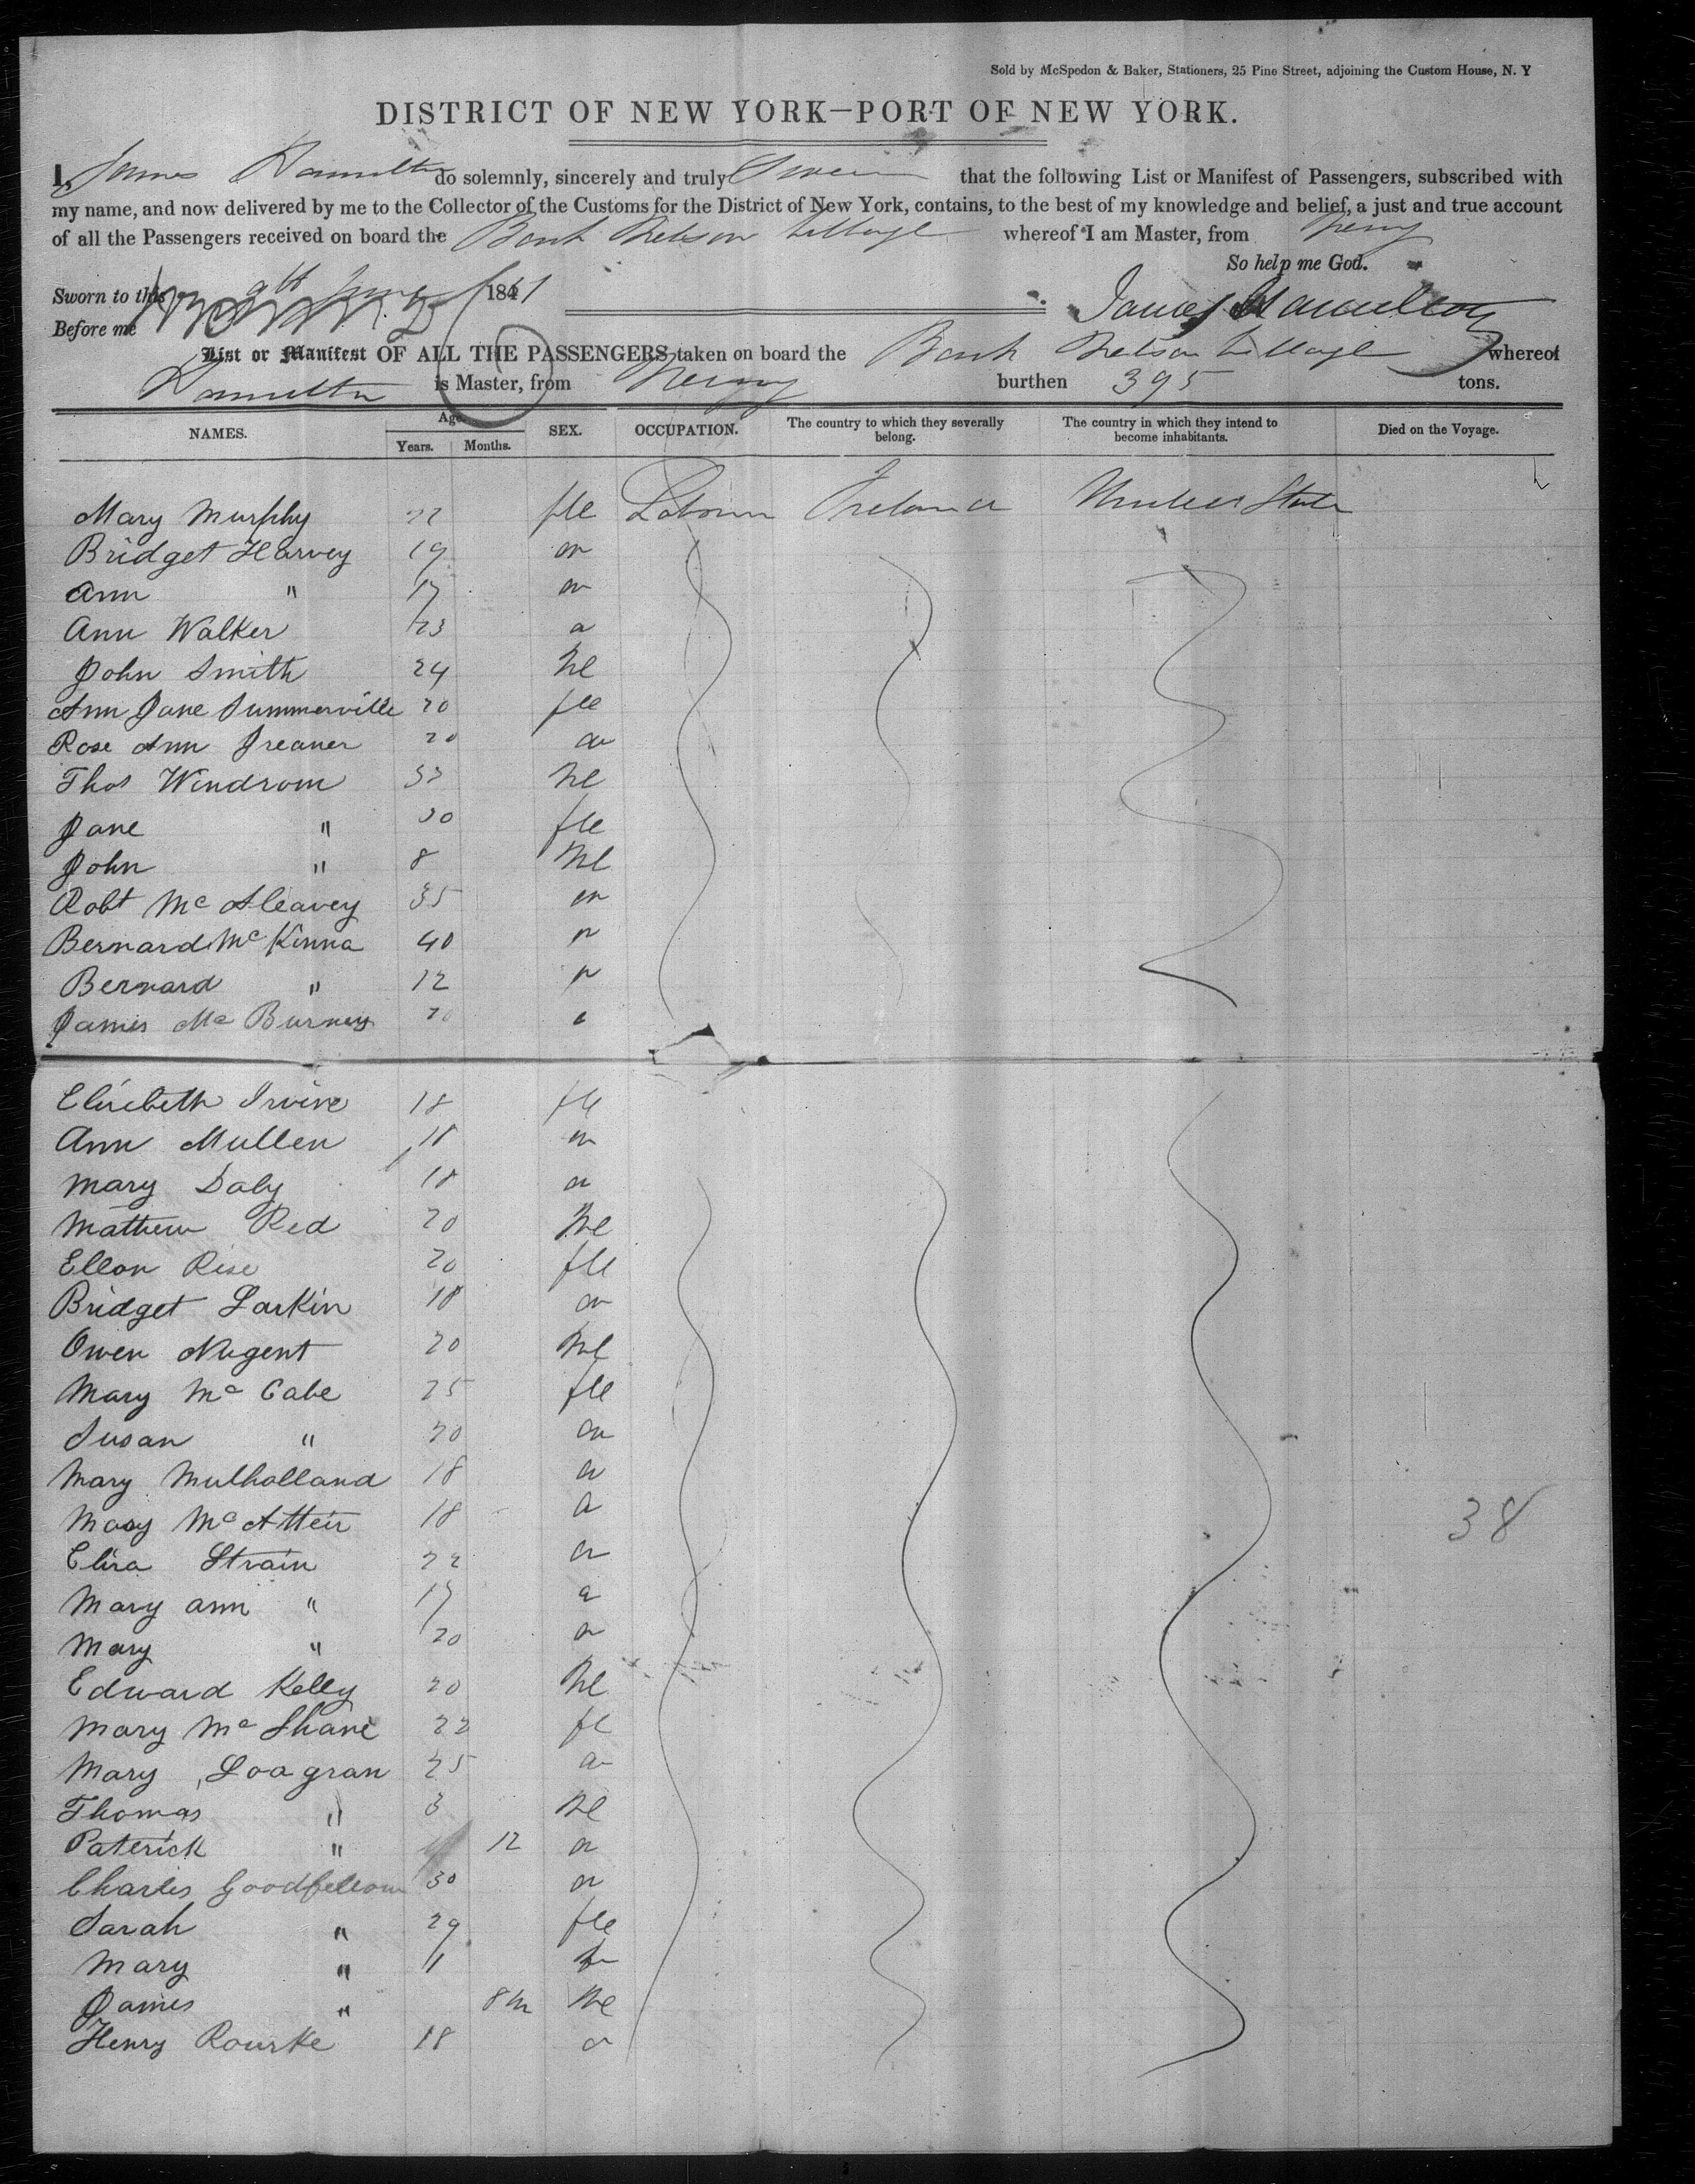 Sold by McSpedon & Baker, Stationers, 25 Pine Street, adjoining the Custom House, N. Y
DISTRICT OF NEW YORK—PORT OF NEW YORK.
I, James Hamilton do solemnly, sincerely and truly Swear that the following List or Manifest of Passengers, subscribed with
my name, and now delivered by me to the Collector of the Customs for the District of New York, contains, to the best of my knowledge and belief, a just and true account
of all the Passengers received on board the Bark Nelson Village whereof I am Master, from Newry
So help me God.
Sworn to this 9th June 1841
James Hamilton
Before me
List or Manifest OF ALL THE PASSENGERS taken on board the Bark Nelson Village whereof
Hamilton is Master, from Newry burthen 395 tons.
NAMES. Age. Years. Months. SEX. OCCUPATION. The country to which they severally belong. The country in which they intend to become inhabitants. Died on the Voyage.
Mary Murphy 22 fle Labourer Ireland United States
Bridget Harvey 19
Ann " 17
Ann Walker 23
John Smith 24 Ml
Ann Jane Summerville 20 fle
Rose Ann Treaner 20
Thos Windrom 33 Ml
Jane " 30 fle
John " 8 Ml
Robt Mc Aleavey 35
Bernard Mc Kinna 40
Bernard " 12
James Mc Burney 20
Elizebeth Irvine 18 fle
Ann Mullen 18
Mary Daly 18
Mathew Red 20 Ml
Ellon Rise 20 fle
Bridget Larkin 18
Owen Nugent 20 Ml
Mary Mc Cabe 25 fle
Susan " 20
Mary Mulholland 18
Mary Mc Atteir 18
38
Eliza Strain 22
Mary ann " 17
Mary " 20
Edward Kelly 20 Ml
Mary Mc Shane 22 fe
Mary Loagran 25
Thomas " 3 Ml
Paterick " 12
Charles Goodfellow 30
Sarah " 29 fle
Mary " 11
James " 8 m Ml
Henry Rourke 18